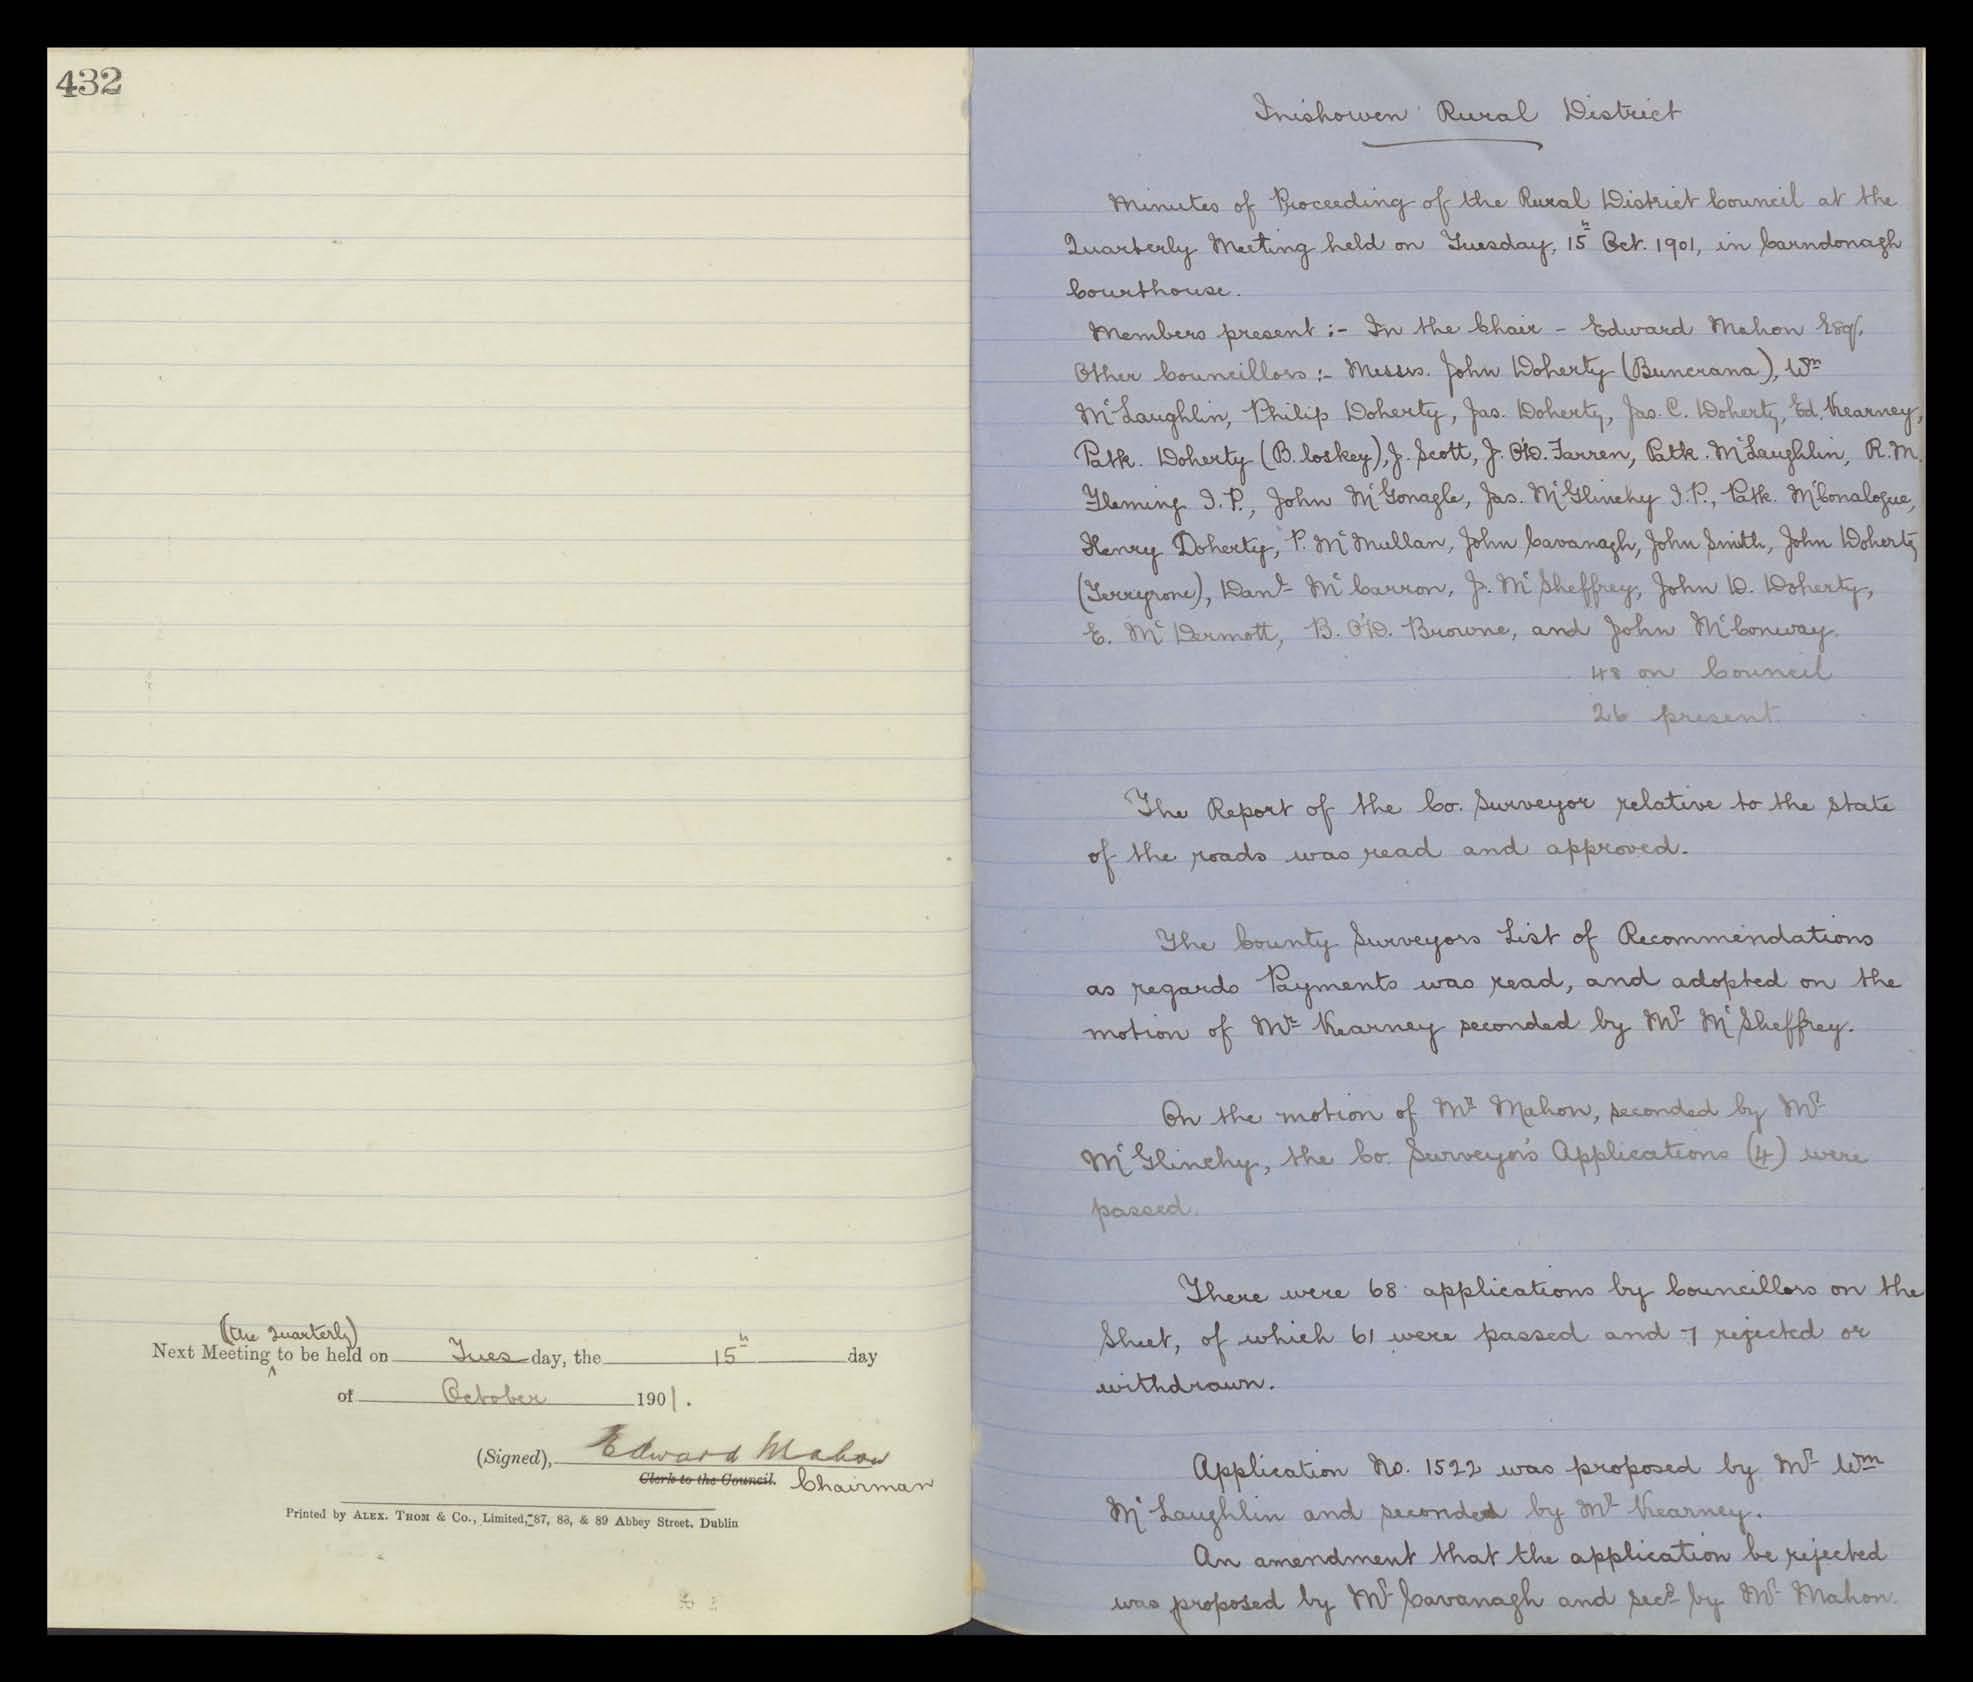 432
(the Quarterly)
Next Meeting to be held on Tuesday, the 15th day
of October 1901.
(Signed), Edward Mahon
Clerk to the Council. Chairman
Printed by ALEX. THOM & Co., Limited, 87, 88, & 89 Abbey Street, Dublin
Inishowen Rural District
Minutes of Proceeding of the Rural District Council at the
Quarterly Meeting held on Tuesday, 15th Oct. 1901, in Carndonagh
Courthouse.
Members present :- In the Chair - Edward Mahon Esqr.
Other Councillors :- Messrs. John Doherty (Buncrana), Wm
McLaughlin, Philip Doherty, Jas. Doherty, Jas. C. Doherty, Ed. Kearney,
Patk. Doherty (B. loskey), J. Scott, J. O'D. Farren, Patk. McLaughlin, R.M.
Fleming J.P., John McGonagle, Jas. McGlinchy J.P., Patk. McConalogue,
Henry Doherty, P. McMullan, John Cavanagh, John Smith, John Doherty
(Terryrone), Danl McCarron, J. McSheffrey, John D. Doherty,
E. McDermott, B. O'D. Browne, and John McConway.
48 on Council
26 present.
The Report of the Co. Surveyor relative to the state
of the roads was read and approved.
The County Surveyors List of Recommendations
as regards Payments was read, and adopted on the
motion of Mr Kearney seconded by Mr McSheffrey.
On the motion of Mr Mahon, seconded by Mr
McGlinchy, the Co. Surveyor's Applications (4) were
passed.
There were 68 applications by Councillors on the
Sheet, of which 61 were passed and 7 rejected or
withdrawn.
Application No. 1522 was proposed by Mr Wm
McLaughlin and seconded by Mr Kearney.
An amendment that the application be rejected
was proposed by Mr Cavanagh and secd by Mr Mahon.